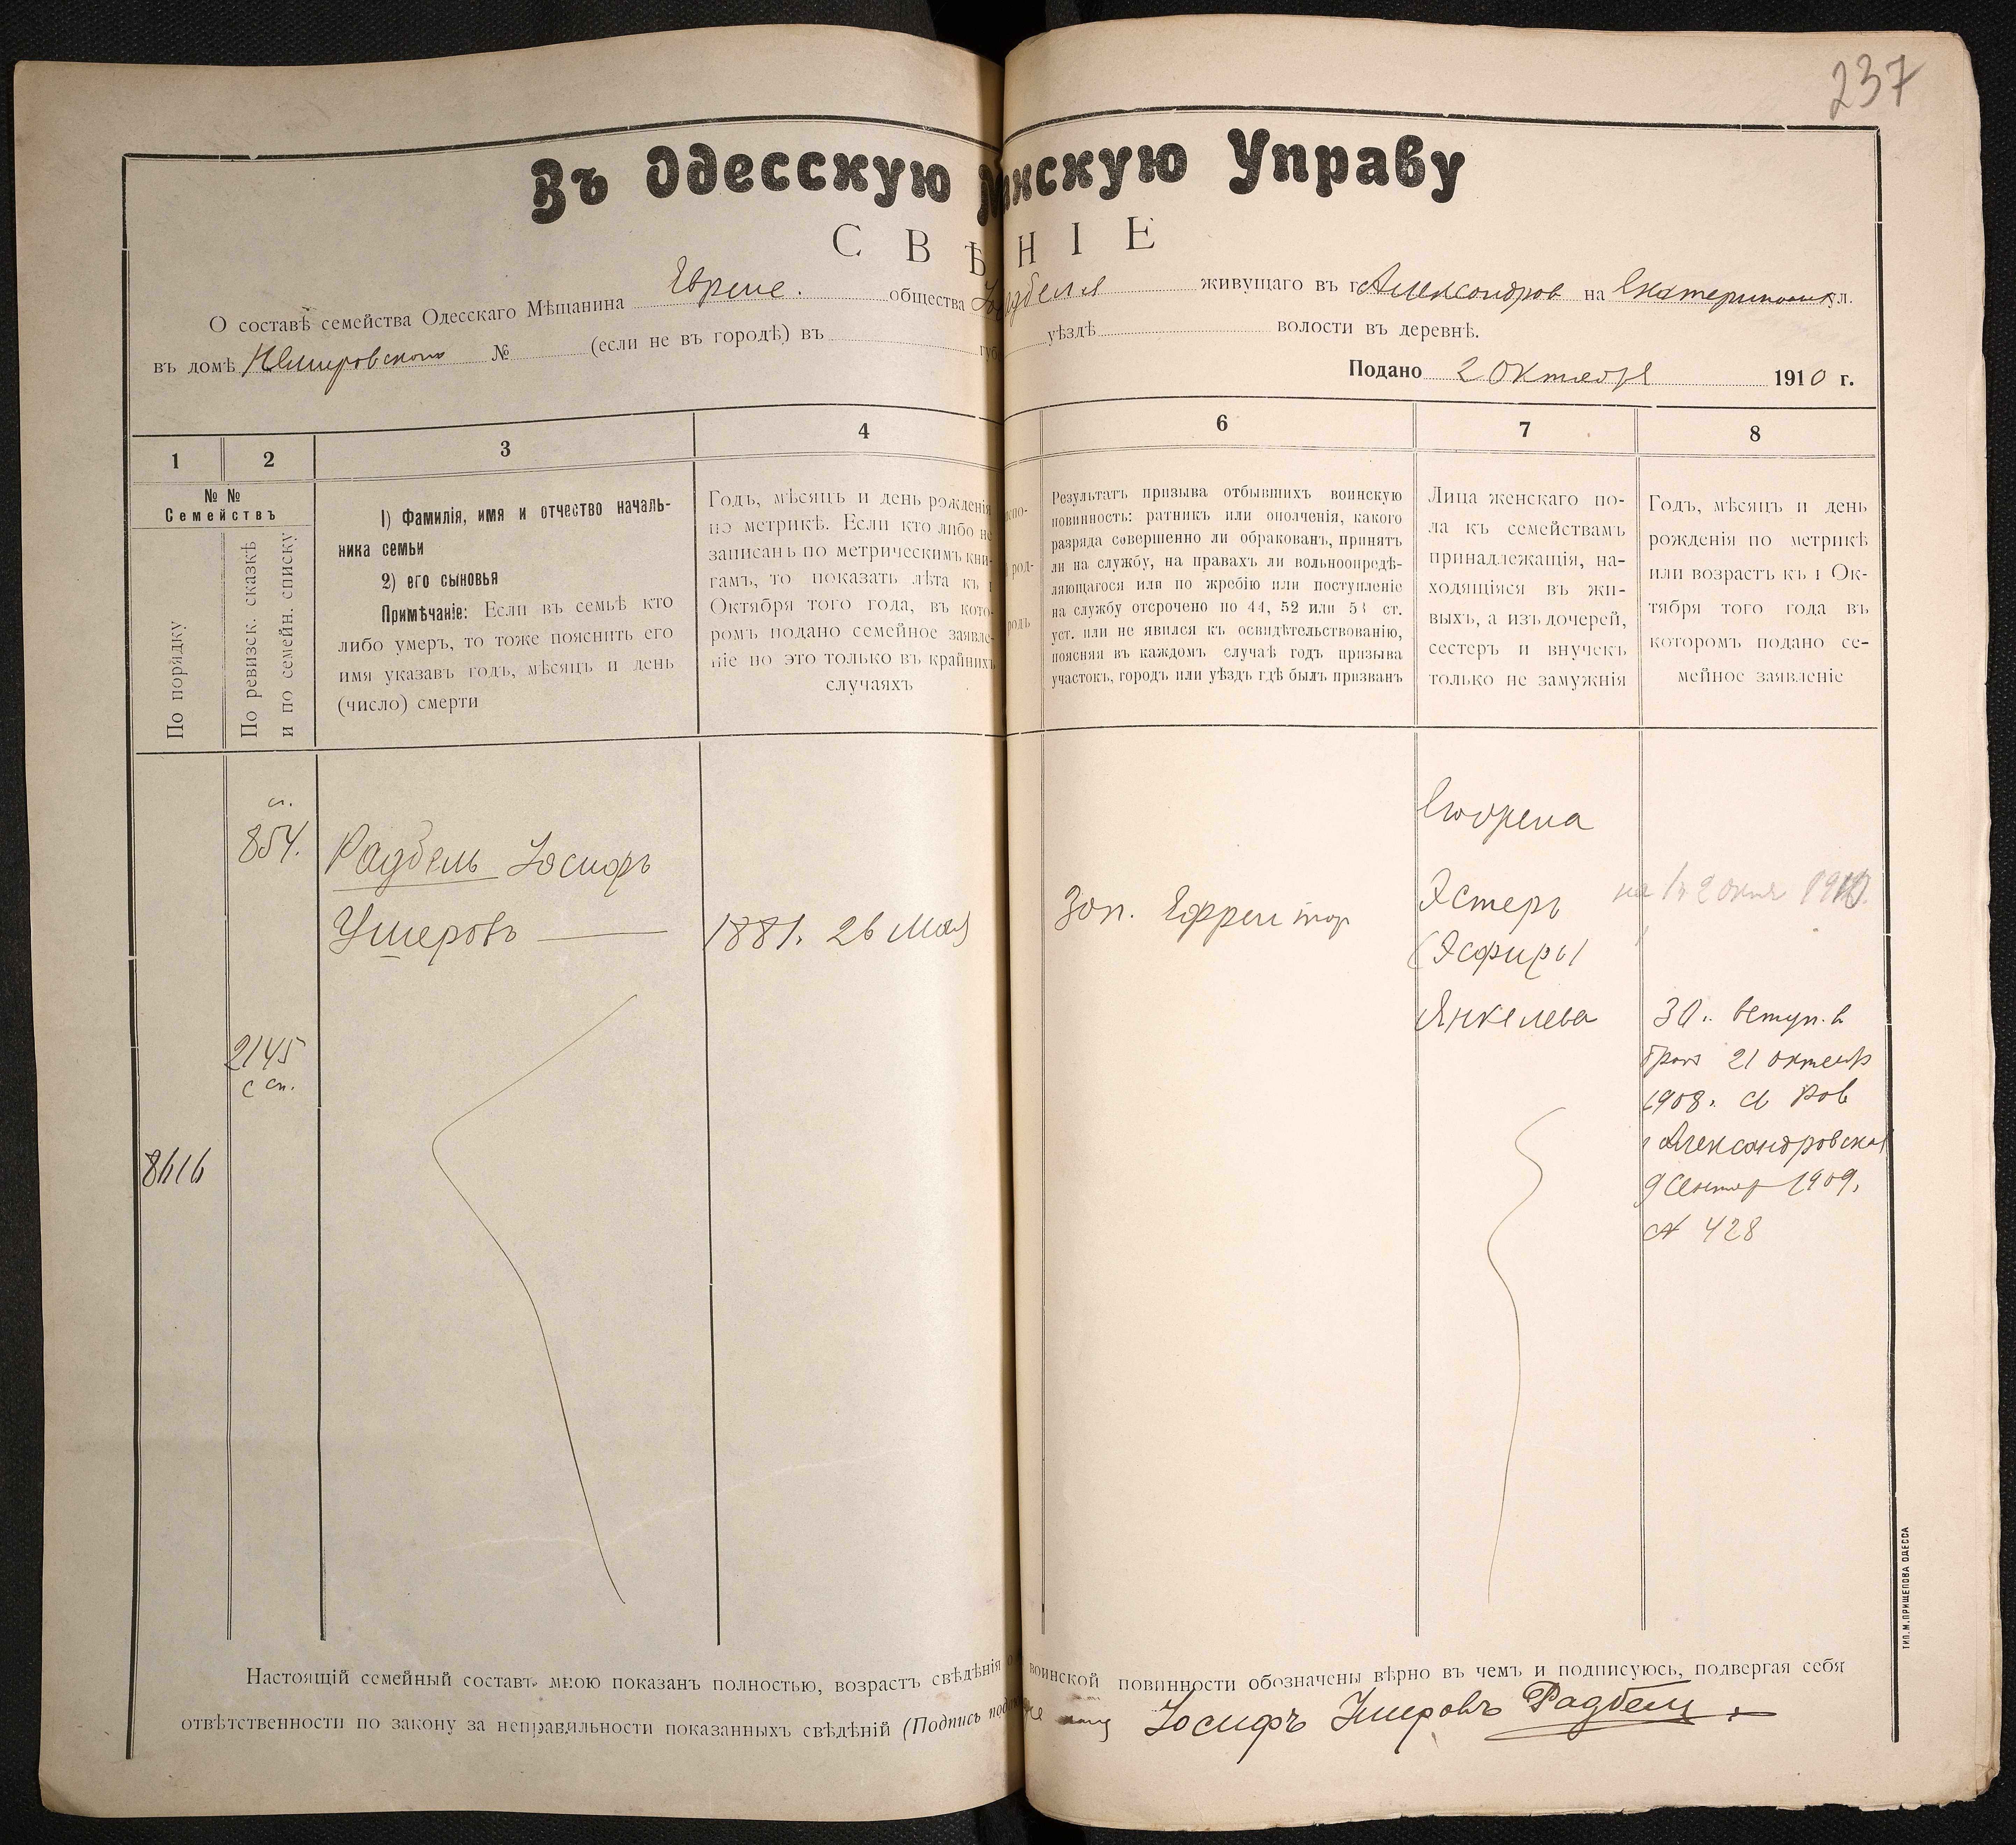 237
Въ Одесскую М нскую Управу
СВѢ НІЕ
О составѣ семейства Одесскаго Мѣщанина Евреис. общества живущаго въ г. Александров на ул.
въ домѣ № (если не въ городѣ) въ губ уѣздѣ волости въ деревнѣ.
Подано 2 Октября 1910 г.
1 2 3 4 6 7 8
№ №
Семействъ
По порядку
По ревизск. сказкѣ
и по семейн. списку
1) Фамилія, имя и отчество началь-
ника семьи
2) его сыновья
Примѣчаніе: Если въ семьѣ кто
либо умеръ, то тоже пояснить его
имя указавъ годъ, мѣсяцъ и день
(число) смерти
Годъ, мѣсяцъ и день рожденія
по метрикѣ. Если кто либо не
записанъ по метрическимъ кни-
гамъ, то показать лѣта къ 1
Октября того года, въ кото-
ромъ подано семейное заявле-
ніе но это только въ крайнихъ
случаяхъ
Результатъ призыва отбывшихъ воинскую
повинность: ратникъ или ополченія, какого
разряда совершенно ли обракованъ, принятъ
ли на службу, на правахъ ли вольноопредѣ-
ляющагося или по жребію или поступленіе
на службу отсрочено по 44, 52 или 53 ст.
уст. или не явился къ освидѣтельствованію,
поясняя въ каждомъ случаѣ годъ призыва
участокъ, городъ или уѣздъ гдѣ былъ призванъ
Лица женскаго по-
ла къ семействамъ
принадлежащія, на-
ходящіяся въ жи-
выхъ, а изъ дочерей,
сестеръ и внучекъ
только не замужнія
Годъ, мѣсяцъ и день
рожденія по метрикѣ
или возрастъ къ 1 Ок-
тября того года въ
которомъ подано се-
мейное заявленіе
сп.
854.
2145
с сп.
8616
Радбель Іосифъ
Ушеровъ
1881. 26 Мая
Зап. Ефрейтор
Эстеръ
(Эсфирь)
Янкелева
30. вступ. в
бракъ 21 октябр
1908.
Александровска
9 Сентяр 1909.
№ 428
Настоящій семейный составъ мною показанъ полностью, возрастъ свѣдѣнія о воинской повинности обозначены вѣрно въ чемъ и подписуюсь, подвергая себя
отвѣтственности по закону за неправильности показанныхъ свѣдѣній (Подпись Іосифъ Ушеровъ Радбель.
ТИП. М. ПРИЩЕПОВА ОДЕССА